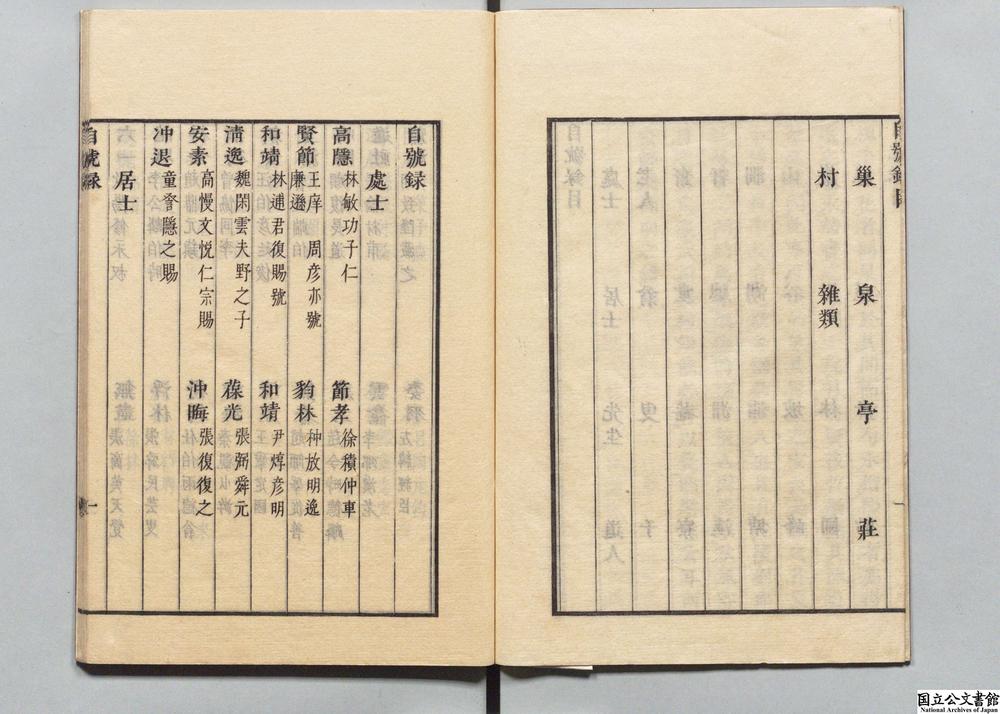 巢 泉 亭 莊
村 雜類
自號録
處士
高隱 林敏功子仁 節孝 徐積仲車
賢節 王庠 周彦亦號廉遜 豹林 种放明逸
和靖 林逋君復賜號 和靖 尹焞彦明
清逸 魏閑雲夫野之子 葆光 張弼舜元
安素 高懌文悦仁宗賜 沖晦 張復復之
冲退 童 隱之賜
居士
自號録 一
国立公文書館
National Archives of Japan